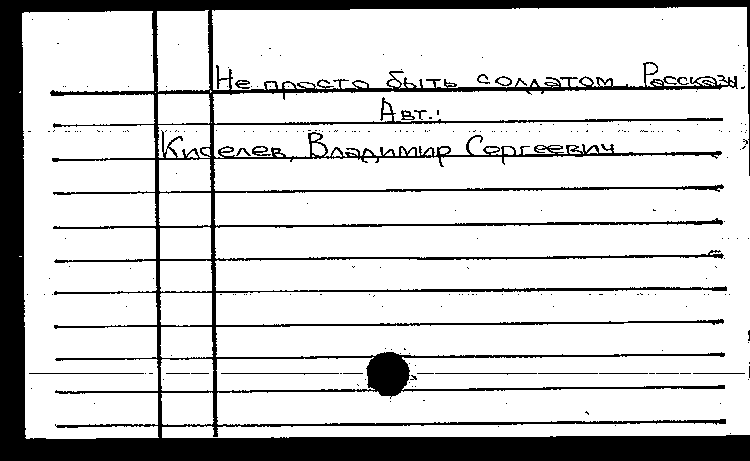 Не просто быть солдатом. Рассказы.
Авт.:
Киселев, Владимир Сергеевич